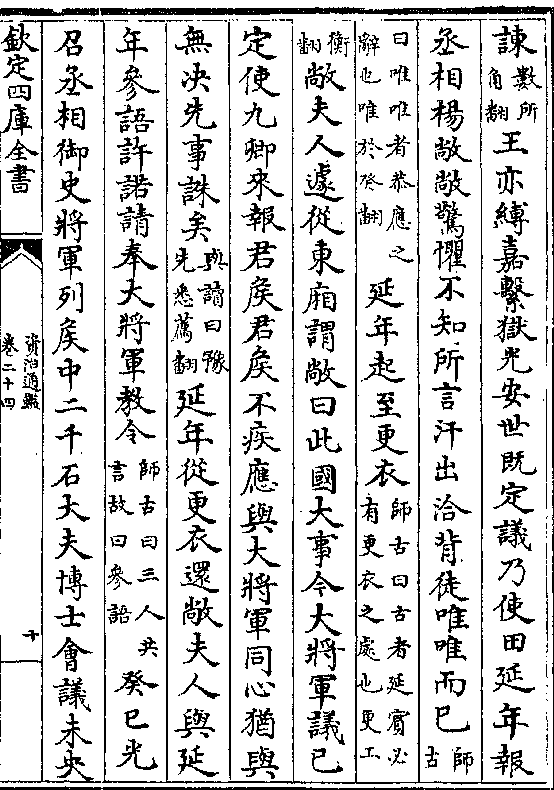 諫數所角翻王亦縛嘉繫獄光安世既定議乃使田延年報
丞相楊敞敞驚懼不知所言汗出洽背徒唯唯而已師古
曰唯唯者恭應之辭也唯於癸翻延年起至更衣師古曰古者延賓必有更衣之處也更工
衡翻敞夫人遽從東廂謂敞曰此國大事今大將軍議已
定使九卿來報君侯君侯不疾應與大將軍同心猶與
無决先事誅矣與讀曰豫先悉薦翻延年從更衣還敞夫人與延
年參語許諾請奉大將軍教令師古曰三人共言故曰參語癸巳光
召丞相御史將軍列侯中二千石大夫博士會議未央
欽定四庫全書
資治通鑑
卷二十四
十